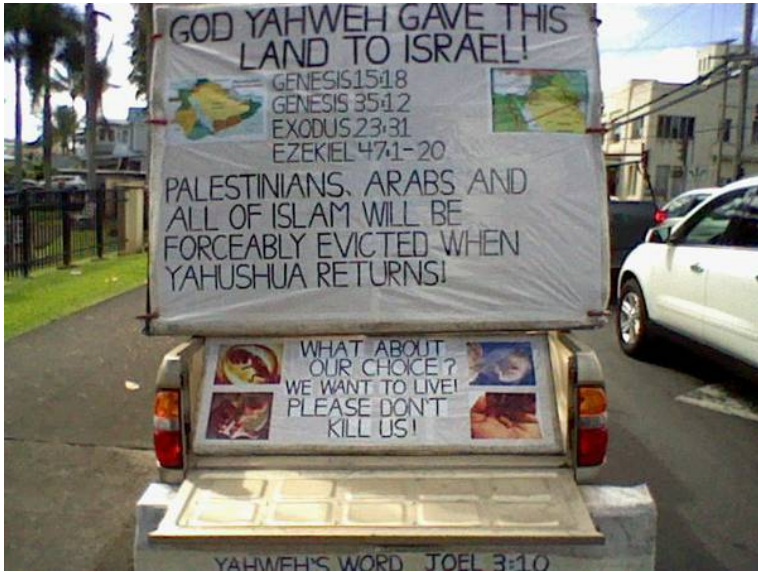 GOD YAHWEH GAVE THIS
LAND TO ISRAEL!
GENESIS 15:18
GENESIS 35:12
EXODUS 23:31
EZEKIEL 47:1-20
PALESTINIANS, ARABS AND
ALL OF ISLAM WILL BE
FORCEABLY EVICTED WHEN
YAHUSHUA RETURNS!
WHAT ABOUT
OUR CHOICE?
WE WANT TO LIVE!
PLEASE DON'T
KILL US!
YAHWEH'S WORD JOEL 3:10